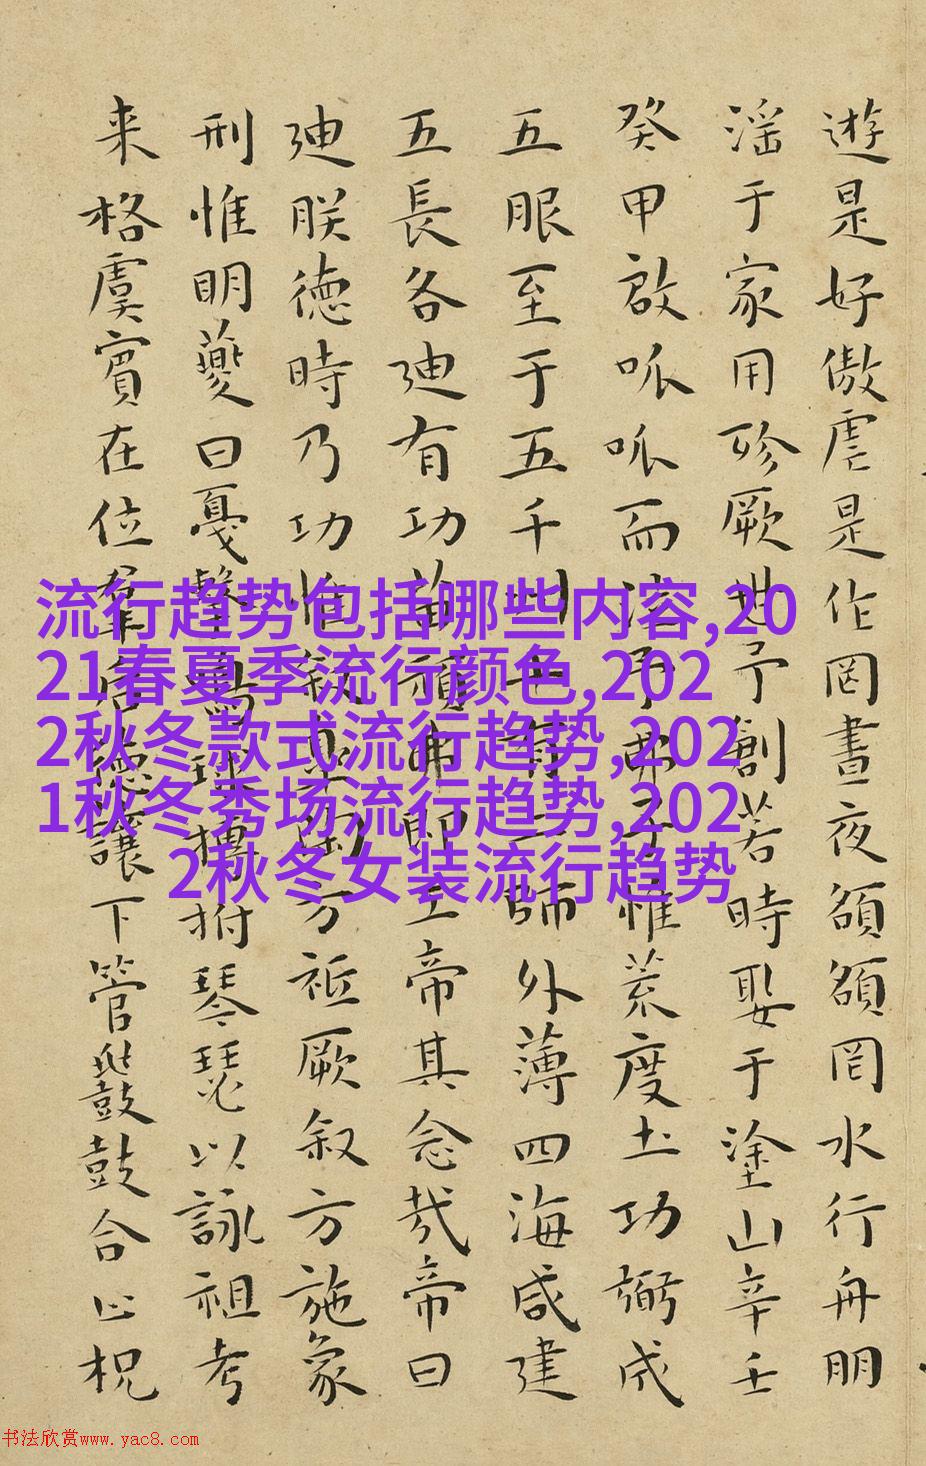 遊是好傲虐是作罔晝夜頟頟罔水行舟朋
淫于家用殄厥世予創若時娶于塗山辛壬
癸甲啟呱呱而泣予弗子惟荒度土功弼成
五服至于五千州十有二師外薄四海咸建
五長各廸有功苗頑弗即工帝其念哉帝曰
廸朕德時乃功惟叙皋陶方祗厥叙方施象
刑惟明夔曰戛擊鳴球搏拊琴瑟以詠祖考
来格虞賓在位羣后德讓下管鼗鼓合止柷
流行趋势包括哪些内容,20
21春夏季流行颜色,202
2秋冬款式流行趋势,202
1秋冬秀场流行趋势,202
2秋冬女装流行趋势
书法欣赏www.yac8.com